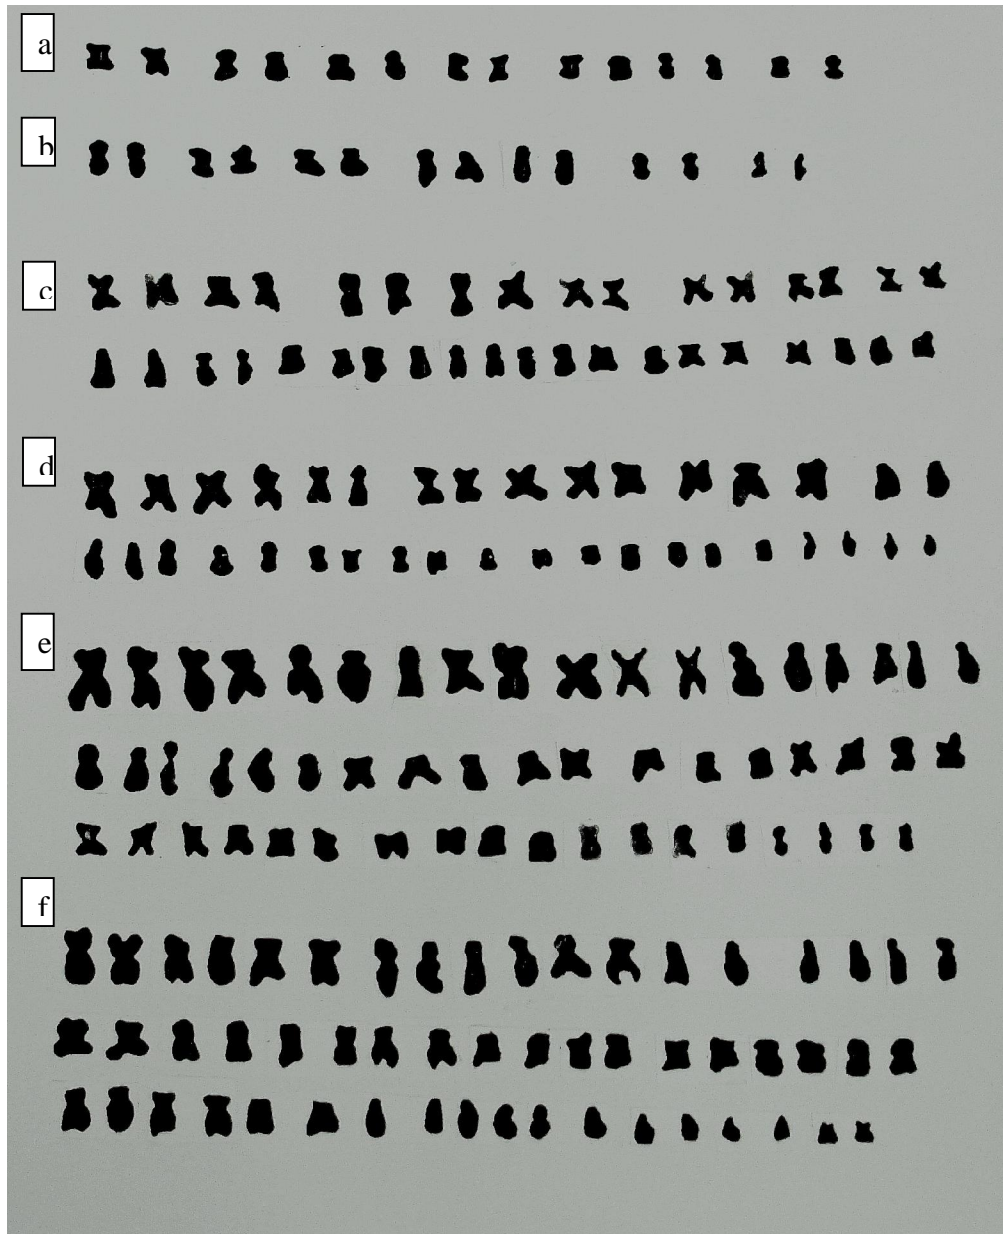 a
b
c
d
e
f